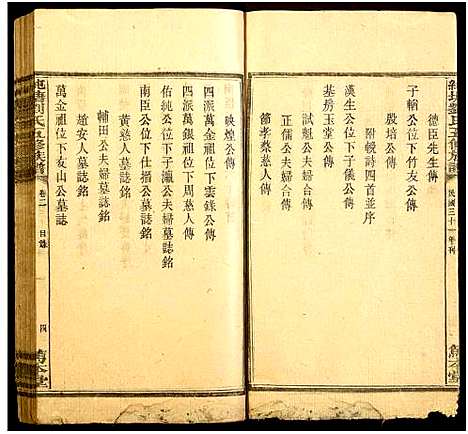 德臣先生傳
子韜公位下竹友公傳
殷培公傳
附輓詩四首並序
漢生公位下子儀公傳
基房玉堂公傳
試魁公夫婦合傳
節孝蔡慈人傳
民國三十一年刊
映煌公傳
四派萬金祖位下雲錄公傳
四派萬金祖位下周慈人傳
佑純公位下子瀛公夫婦墓誌銘
南臣公夫婦墓誌銘
黃慈人墓誌銘
趙安人墓誌銘
輔田公夫婦墓誌銘
萬金祖位下友山公墓誌
劉氏五修族譜
卷二
目錄
四